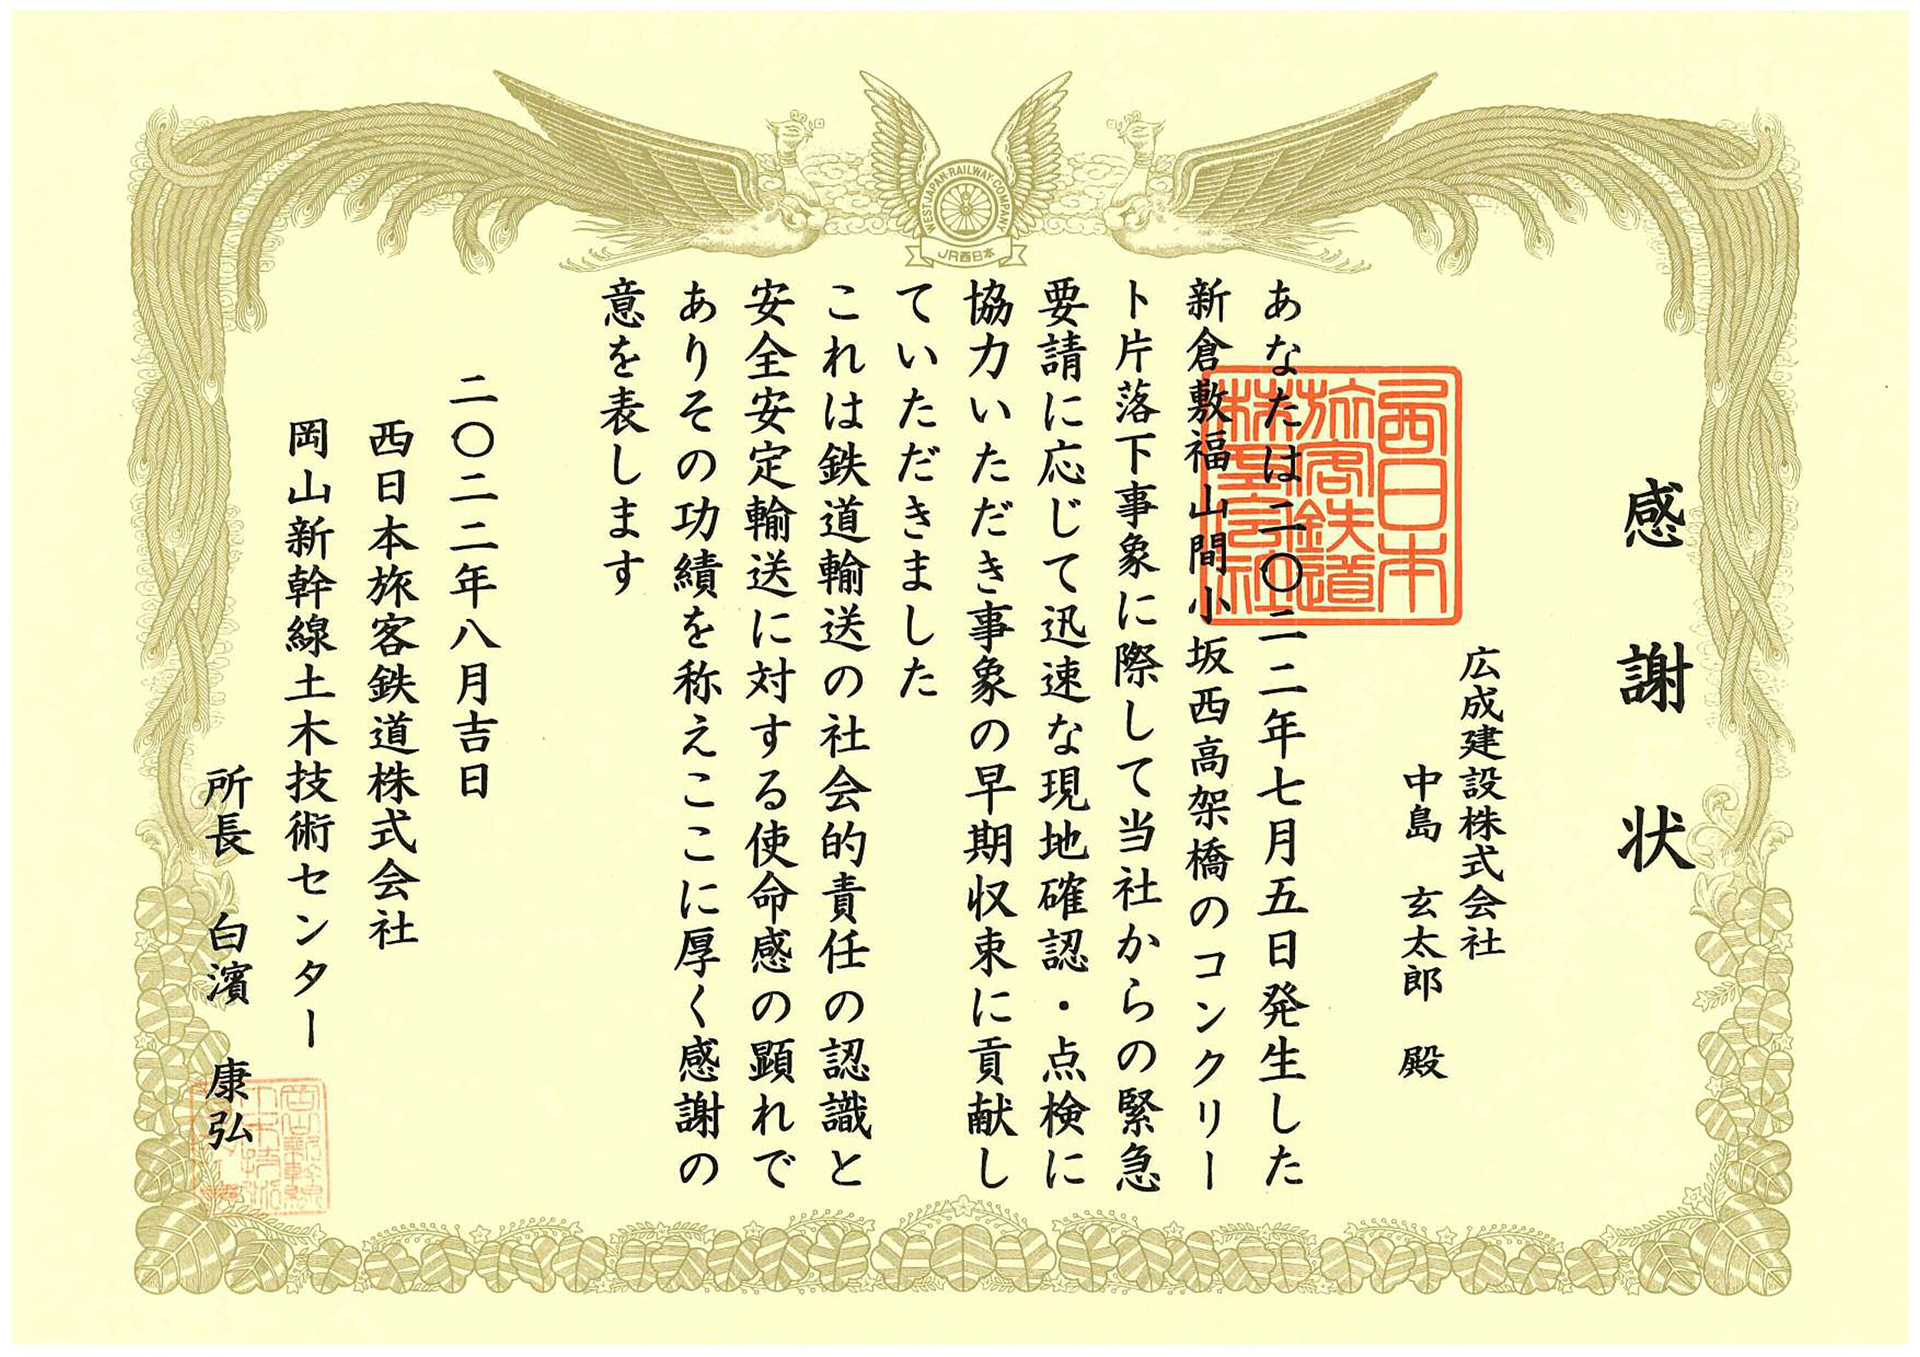 感謝状
広成建設株式会社
中島 玄太郎 殿
あなたは二〇二二年七月五日発生した
新倉敷福山間小坂西高架橋のコンクリー
ト片落下事象に際して当社からの緊急
要請に応じて迅速な現地確認・点検に
協力いただき事象の早期収束に貢献し
ていただきました
これは鉄道輸送の社会的責任の認識と
安全安定輸送に対する使命感の顕れで
ありその功績を称えここに厚く感謝の
意を表します
二〇二二年八月吉日
西日本旅客鉄道株式会社
岡山新幹線土木技術センター
所長 白濱 康弘
WEST JAPAN RAILWAY COMPANY
JR西日本
西日本
旅客鉄道
株式会社